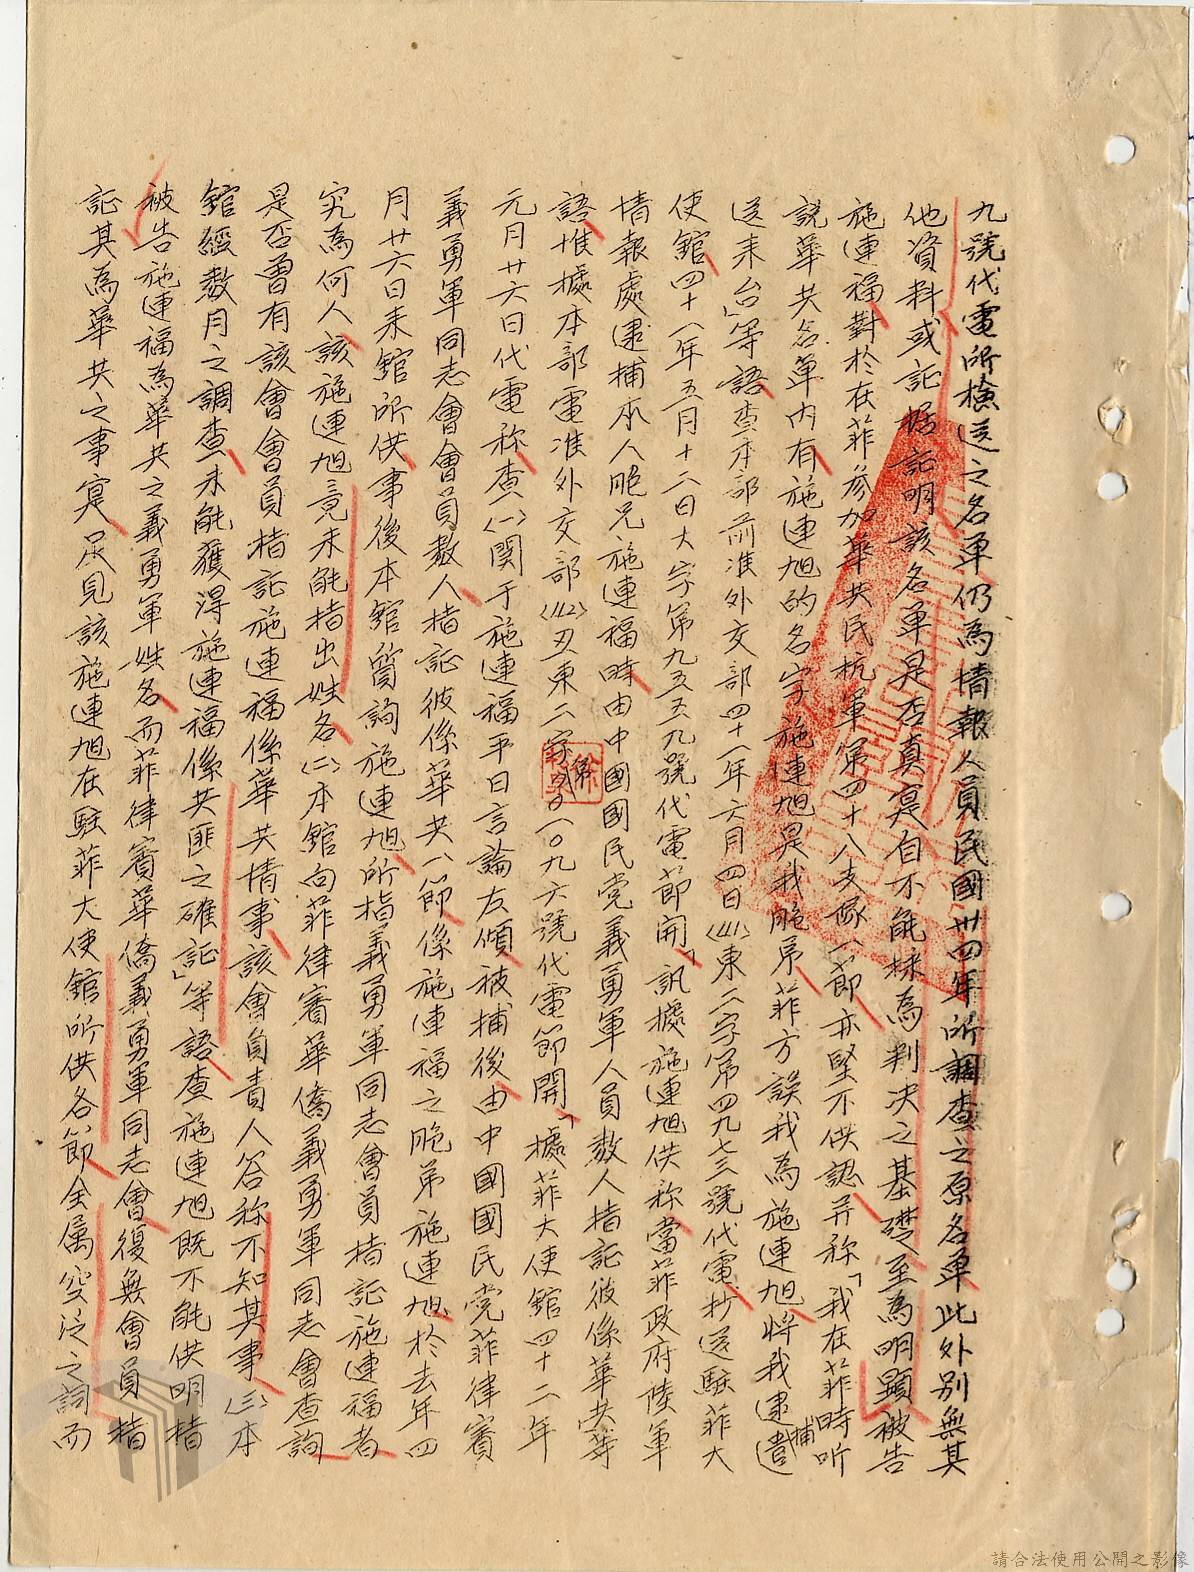 九號代電所檢送之名單仍為情報人員民國卅四年所調查之原名單此外別無其
他資料或記据証明該名單是否真寔自不能採為判決之基礎至為明顯被告
施連福對於在菲參加華共民抗軍第四十八支隊一節亦堅不供認并称「我在菲時听
說華共名單內有施連旭的名字施連旭是我胞弟菲方誤我為施連旭將我逮捕遣
送来台」等語查本部前准外交部四十一年六月四日(41)東二字第四九七三號代電抄送駐菲大
使館四十一年五月十二日大字第九五五九號代電節開「訊據施連旭供称當菲政府陸軍
情報處逮捕本人胞兄施連福時由中國國民党義勇軍人員数人指証彼係華共等
語惟據本部電准外交部(42)丑東二字第〇〇一〇九六號代電節開「據菲大使館四十二年
元月廿六日代電称查(一)関于施連福平日言論友傾被捕後由中國國民党菲律賓
義勇軍同志會會員数人指証彼係華共一節係施連福之胞弟施連旭於去年四
月廿六日来館所供事後本館質詢施連旭所指義勇軍同志會員指記施連福者
究為何人該施連旭竟未能指出姓名(二)本館向菲律賓華僑義勇軍同志會查詢
是否曾有該會會員指証施連福係華共情事該會負責人答称不知其事(三)本
館經数月之調查未能獲得施連福係共匪之確証」等語查施連旭既不能供明指
被告施連福為華共之義勇軍姓名而菲律賓華僑義勇軍同志會復無會員指
証其為華共之事寔足見該施連旭在駐菲大使館所供各節全属空泛之詞而
請合法使用公開之影像